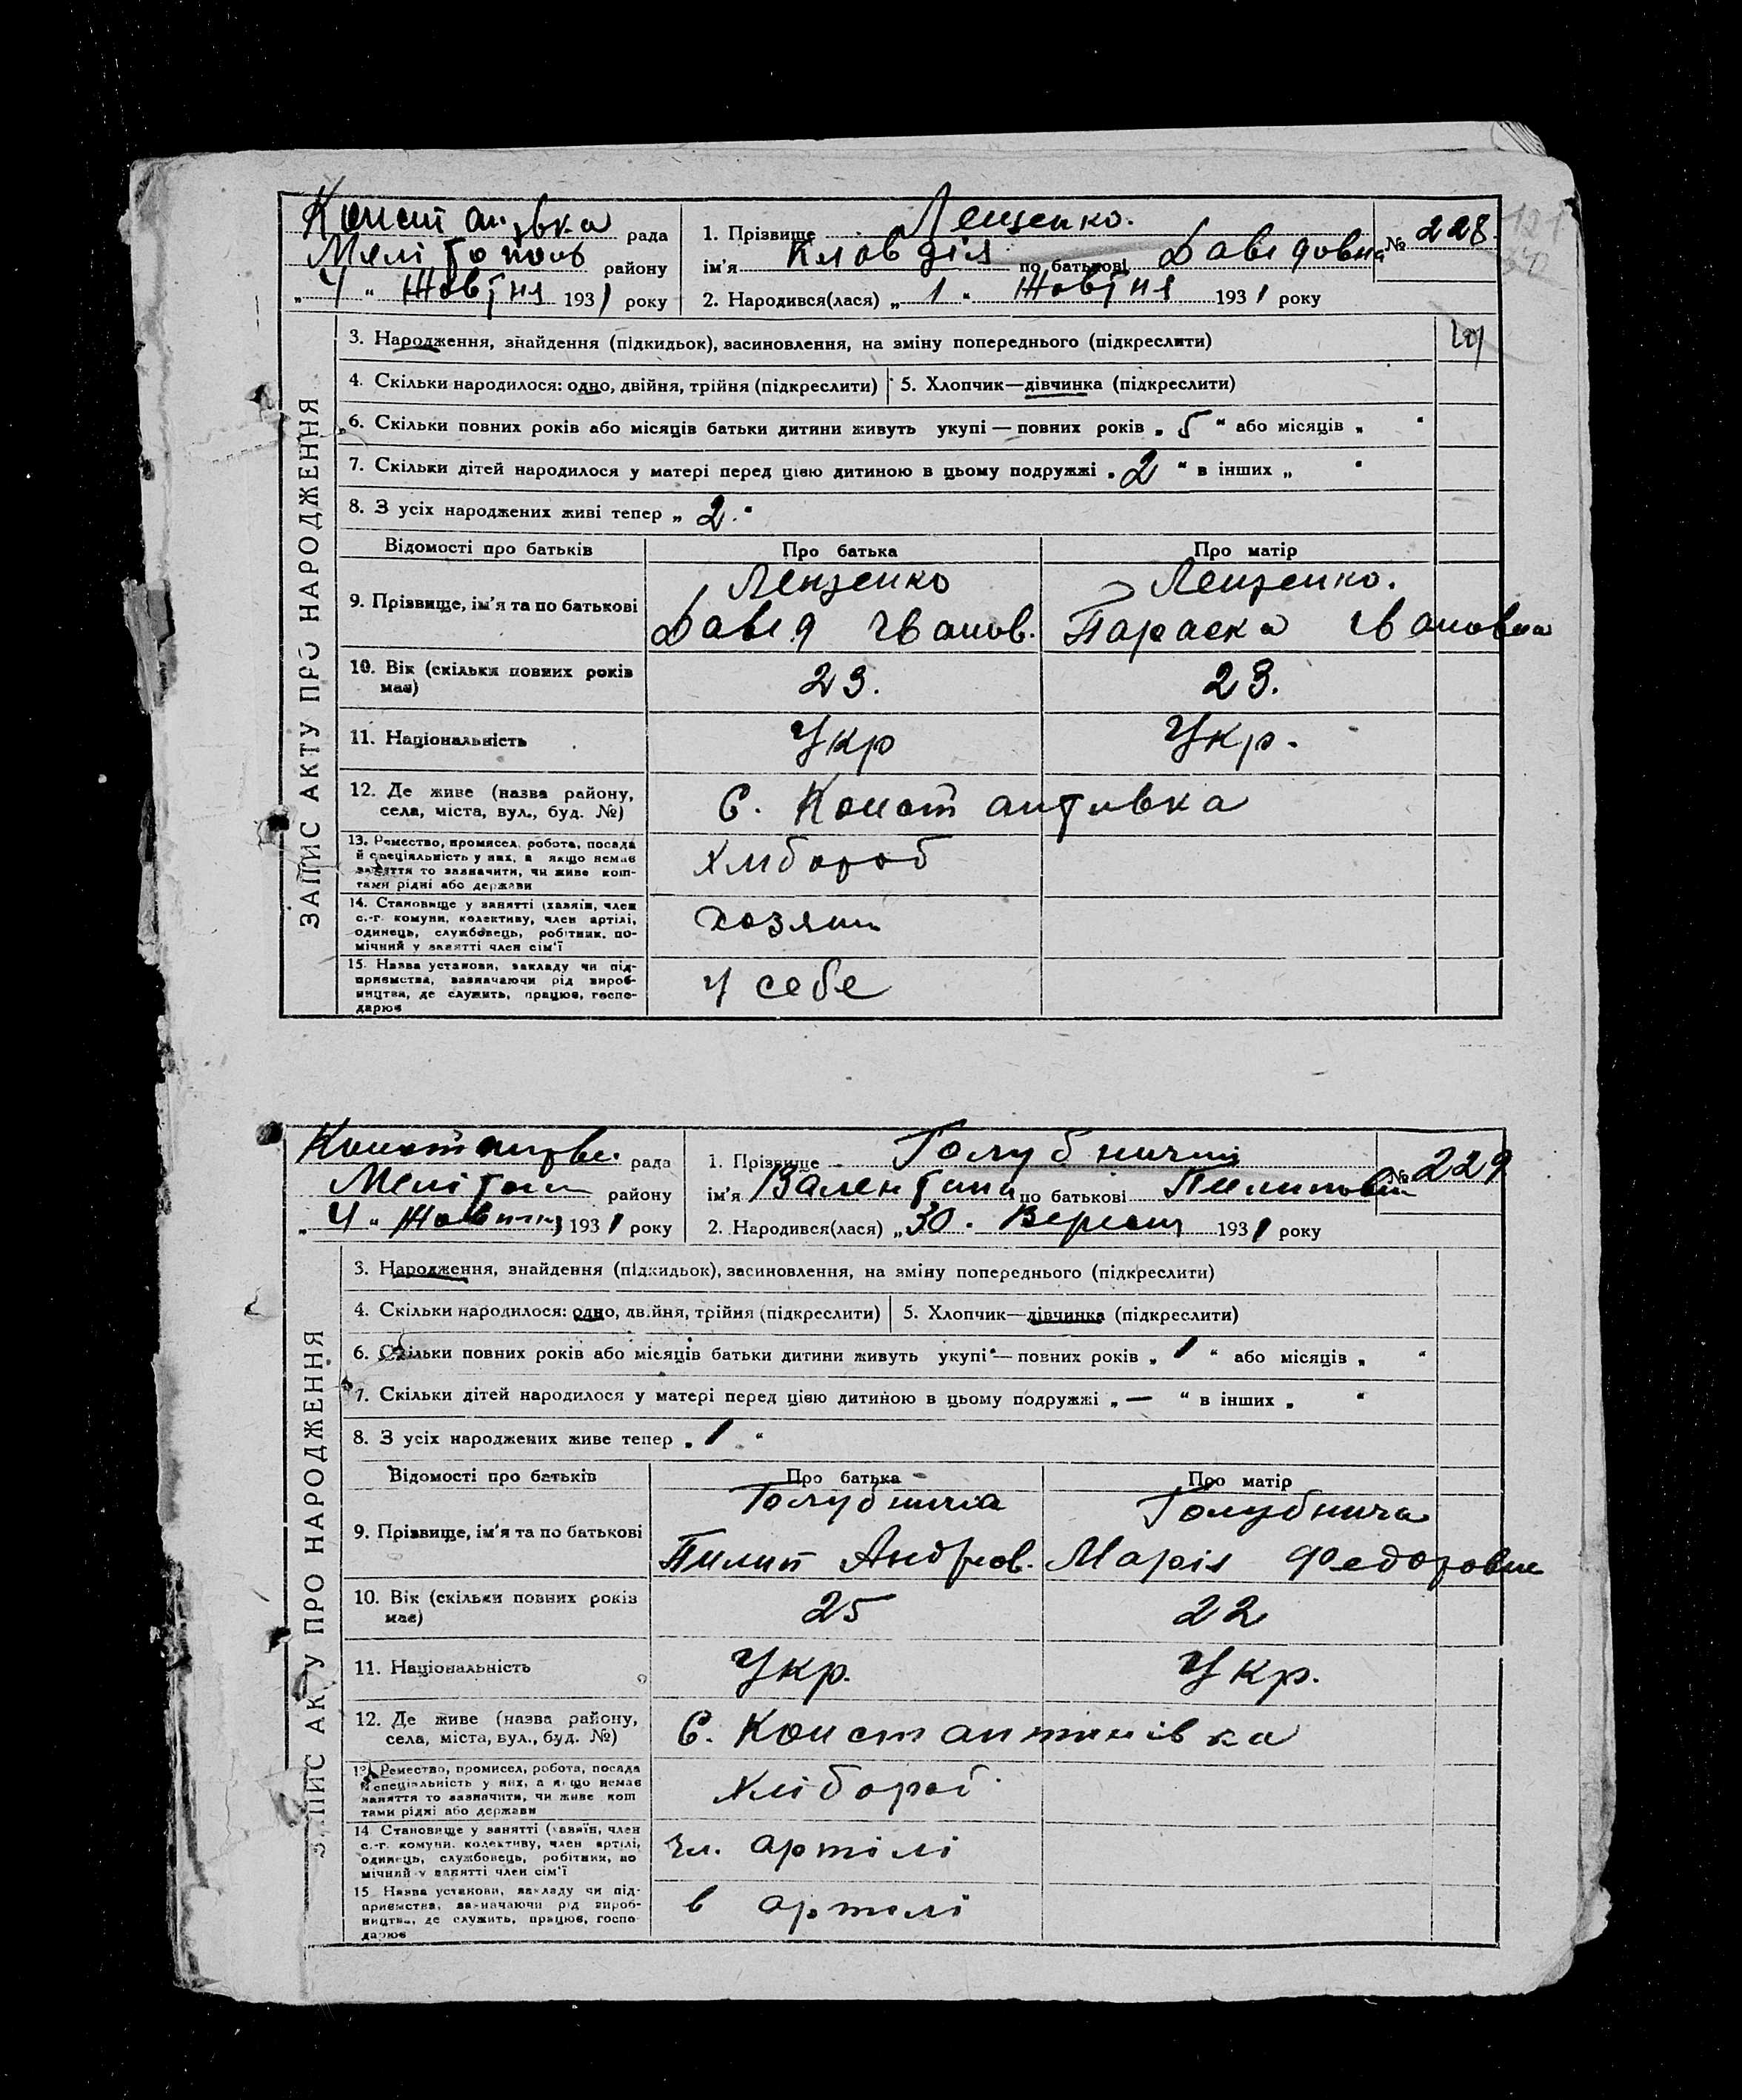 Констан івка рада
Мелітополь району
„ 4 “ Жовтня 1931 року
1. Прізвище Лещенко.
ім'я Клавдія по батькові Давідовна
№ 228
2. Народився(лася) „ 1 “ Жовтня 1931 року
ЗАПИС АКТУ ПРО НАРОДЖЕННЯ
3. Народження, знайдення (підкидьок), засиновлення, на зміну попереднього (підкреслити)
4. Скільки народилося: одно, двійня, трійня (підкреслити) 5. Хлопчик—дівчинка (підкреслити)
6. Скільки повних років або місяців батьки дитини живуть укупі — повних років „ 5 “ або місяців „ “
7. Скільки дітей народилося у матері перед цією дитиною в цьому подружжі „ 2 “ в інших „ “
8. З усіх народжених живі тепер „ 2. “
Відомості про батьків Про батька Про матір
9. Прізвище, ім'я та по батькові
Лещенко Лещенко.
Давід Іванов. Параска Івановна
10. Вік (скільки повних років має) 23. 23.
11. Національність Укр Укр.
12. Де живе (назва району,
села, міста, вул., буд. №)
С. Константивка
13. Ремество, промисел, робота, посада
й спеціяльність у них, а якщо немає
заняття то зазначити, чи живе кош-
тами рідні або держави
Хлібороб
14. Становище у занятті (хазяїн, член
с.-г. комуни, колективу, член артілі,
одинець, службовець, робітник, по-
мічний у занятті член сім'ї
хозяин
15. Назва установи, закладу чи під-
приємства, зазначаючи рід вироб-
ництва, де служить, працює, госпо-
дарює
у себе
рада
Мелітоп району
„ 4 “ Жовтня 1931 року
1. Прізвище Голубничий
ім'я Валентина по батькові Пилиповна
№ 229
2. Народився(лася) „ 30. Вересня 1931 року
ЗАПИС АКТУ ПРО НАРОДЖЕННЯ
3. Народження, знайдення (підкидьок), засиновлення, на зміну попереднього (підкреслити)
4. Скільки народилося: одно, двійня, трійня (підкреслити) 5. Хлопчик—дівчинка (підкреслити)
6. Скільки повних років або місяців батьки дитини живуть укупі — повних років „ 1 “ або місяців „ “
7. Скільки дітей народилося у матері перед цією дитиною в цьому подружжі „ — “ в інших „ “
8. З усіх народжених живе тепер „ 1 “
Відомості про батьків Про батька Про матір
9. Прізвище, ім'я та по батькові
Голубнича Голубнича
Пилип Андреов. Марія Федоровна
10. Вік (скільки повних років має) 25 22
11. Національність Укр. Укр.
12. Де живе (назва району,
села, міста, вул., буд. №)
С. Константинівка
13. Ремество, промисел, робота, посада
й спеціяльність у них, а якщо немає
заняття то зазначити, чи живе кош
тами рідні або держави
Хлібороб
14. Становище у занятті (хазяїн, член
с.-г. комуни, колективу, член артілі,
одинець, службовець, робітник, по
мічний у занятті член сім'ї
чл. артілі
15. Назва установи, закладу чи під-
приємства, зазначаючи рід вироб-
ництва, де служить, працює, госпо-
дарює
в артілі